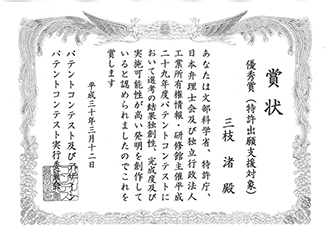 賞状
優秀賞（特許出願支援対象）
三枝 渚 殿
あなたは文部科学省、特許庁、
日本弁理士会及び独立行政法人
工業所有権情報・研修館主催平成
二十九年度パテントコンテストに
おいて選考の結果独創性、完成度及び
実施可能性が高い発明を創作して
いると認められましたのでこれを
賞します
平成三十年三月十二日
パテントコンテスト及び
パテントコンテスト実行委員会